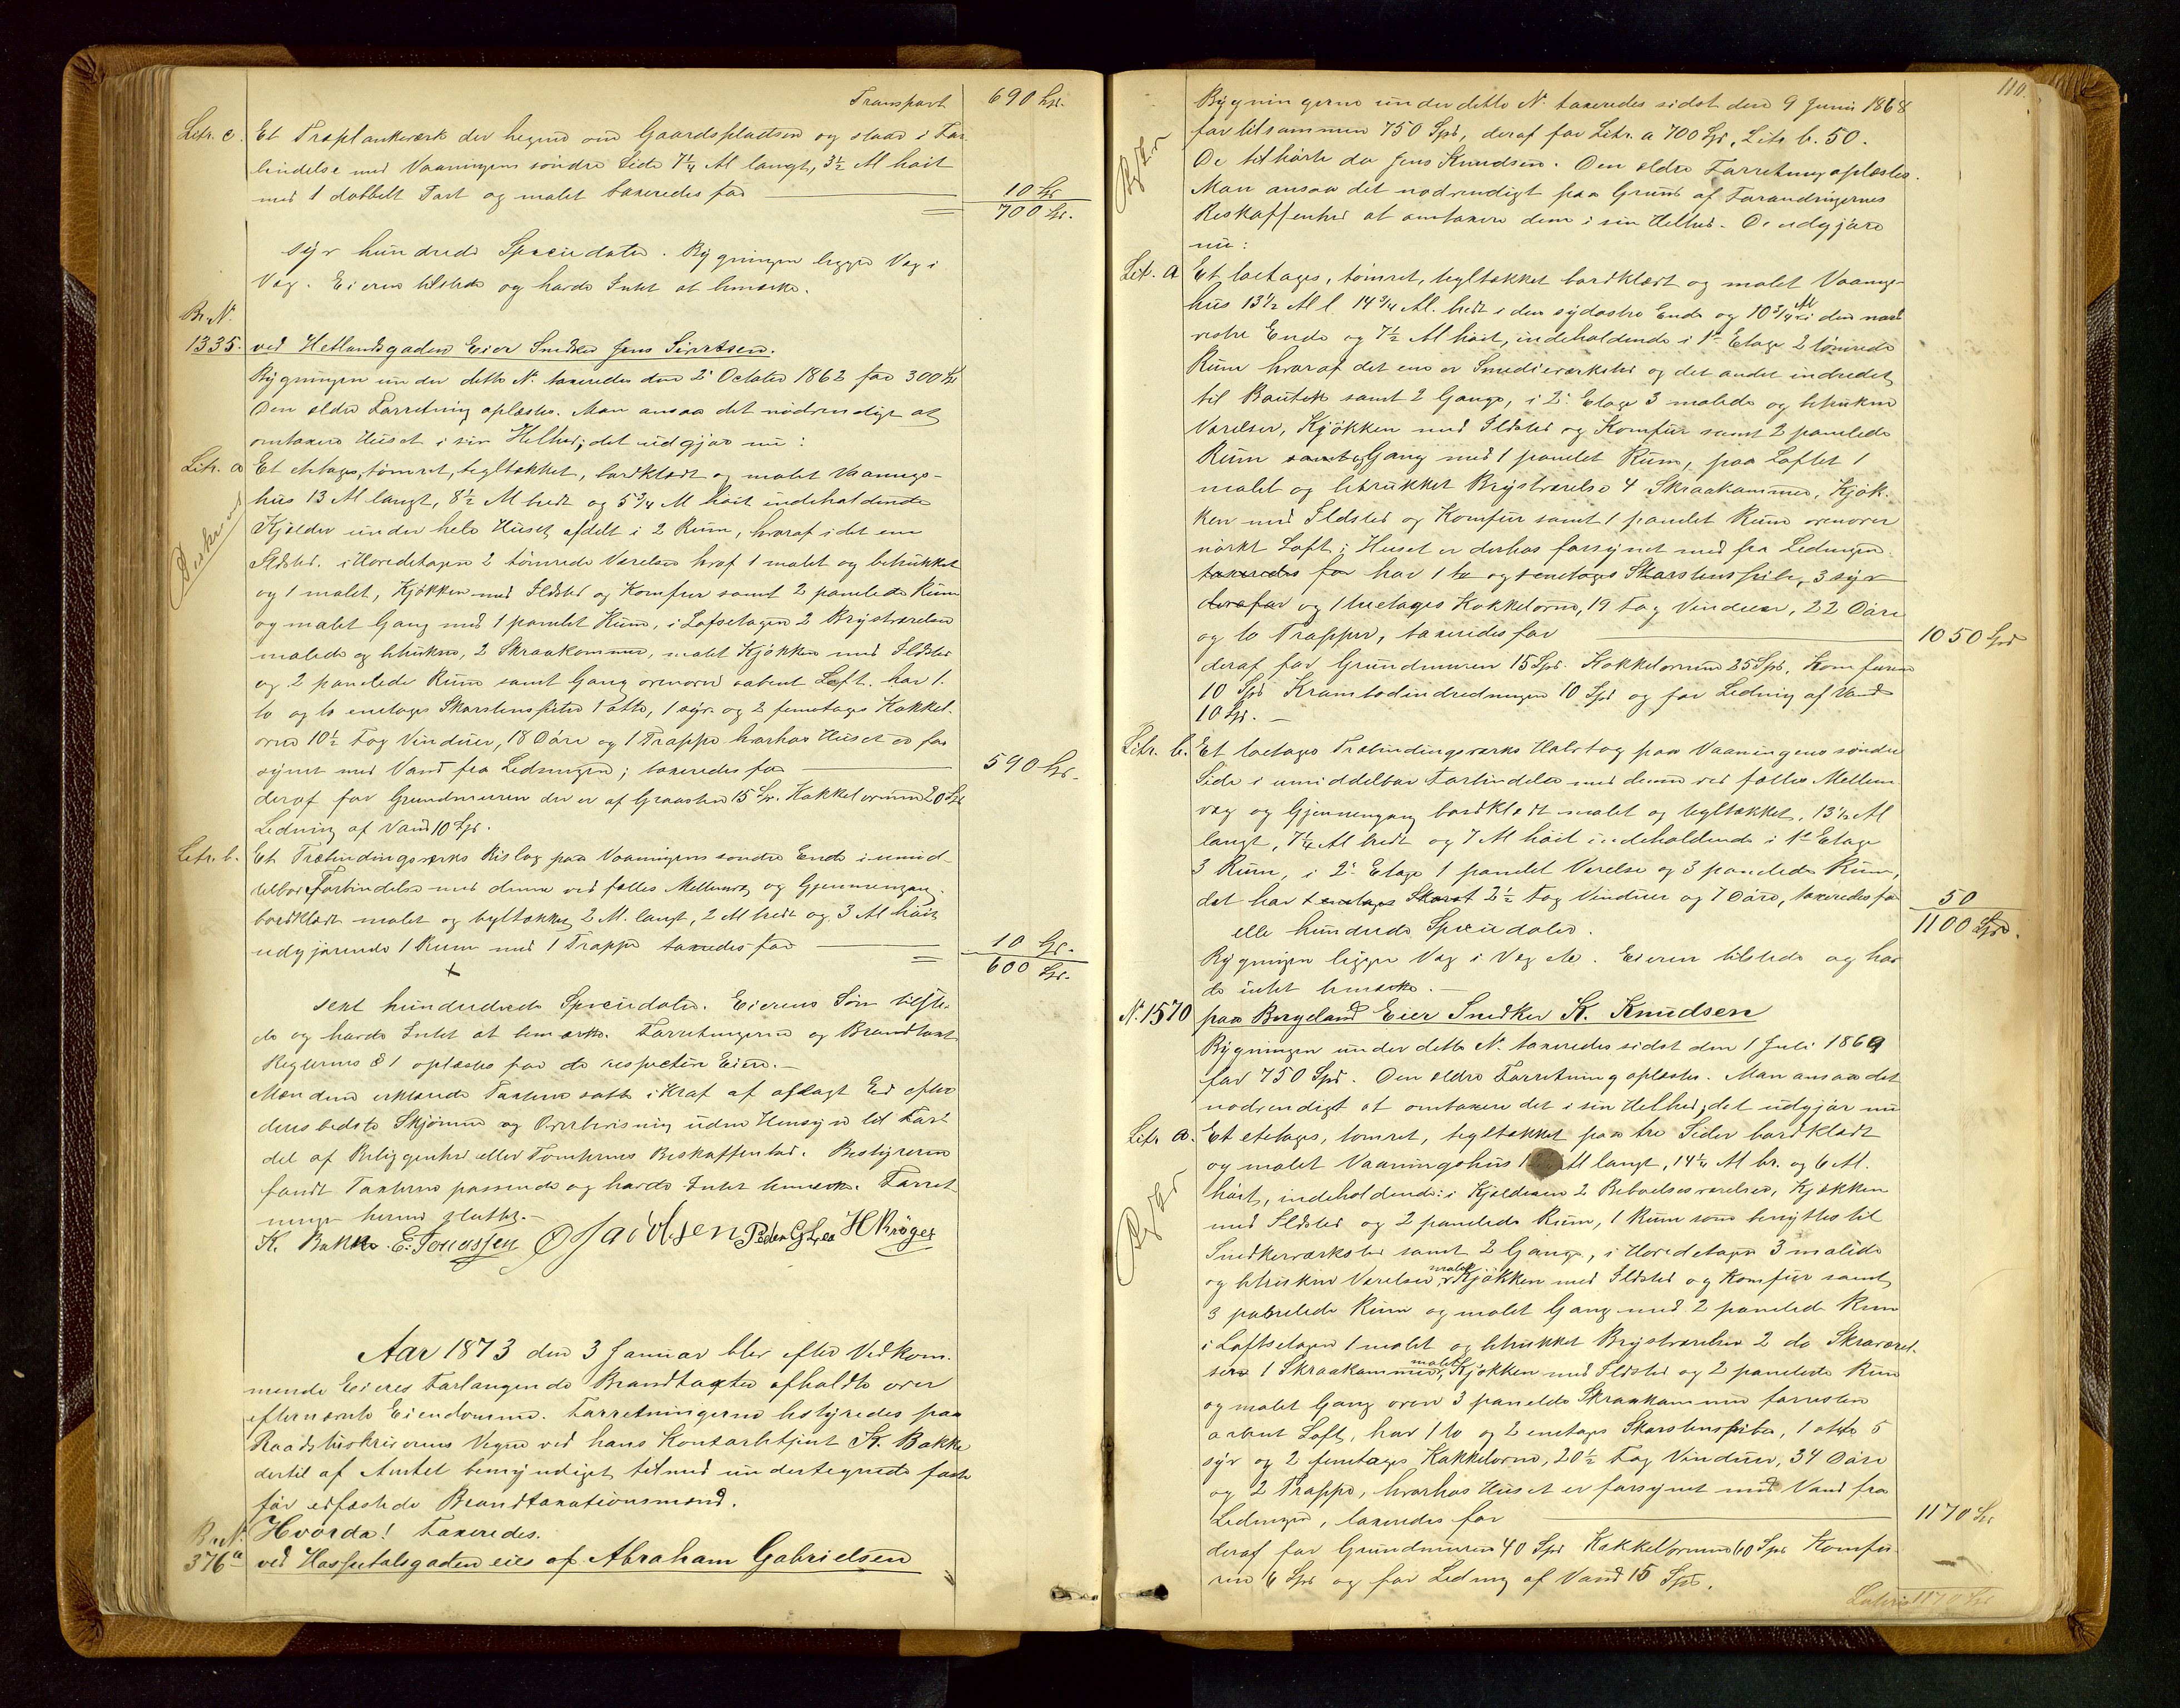 Transport 690 Spd.
Litr. c. Et Træplankeværk der hegner om Gaardspladsen og staar i For-
bindelse med Vaaningens søndre Side 7¼ Al langt, 3½ Al høit
med 1 dobbelt Port og malet taxeredes for 10 Spd
700 Spd.
syv hundrede Speciedaler. Bygningen ligger Væg i
Væg. Eieren tilstede og havde Intet at bemærke.
Br. N.
1335. ved Hetlandsgaden Eier Snedker Jens Sivertsen.
Bygningen under dette N. taxeredes den 2' October 1862 for 300 Spd
Den ældre Forretning oplæstes. Man ansaa det nødvendigt at
omtaxere Huset i sin Helhed; det udgjør nu:
Litr. a Et etetages, tømret, tegltækket, bordklædt og malet Vaanings-
hus 13 Al langt, 8½ Al bredt og 5¾ Al høit indeholdende
Kjelder under hele Huset afdelt i 2 Rum, hvoraf i det ene
Ildsted. i Hovedetagen 2 tømrede Værelser hvoraf 1 malet og betrukket
og 1 malet, Kjøkken med Ildsted og Komfur samt 2 panelede Rum
og malet Gang med 1 panelet Rum, i Loftsetagen 2 Brystværelser
malede og betrukne, 2 Skraakammer, malet Kjøkken med Ildsted
og 2 panelede Rum samt Gang ovenover aabent Loft. har 1.
to og to enetages Skorstenspiber 1 otte, 1 syv og 2 femetages Kakkel-
ovne 10½ Fag Vinduer, 18 Døre og 1 Trappe hvorhos Huset er for
synet med Vand fra Ledningen; taxeredes for 590 Spd.
deraf for Grundmuren der er af Graasten 15 Spd. Kakkelovnene 20 Spd
Ledning af Vand 10 Spd.
Litr. b. Et Træbindingsverks Bislag paa Vaaningens søndre Ende i umid-
delbar Forbindelse med denne ved fælles Mellemvæg og Gjennemgang.
bordklædt malet og tegltækket, 2 Al. langt, 2 Al bredt og 3 Al høit
udgjørende 1 Rum med 1 Trappe taxeredes for 10 Spd.
600 Spd.
sext hundredrede Speciedaler. Eierens Søn tilste-
de og havde Intet at bemærke. Forretningerne og Brandtaxt
Reglernes § 1 oplæstes for de respective Eiere.-
Mændene erklærede Taxterne satte i Kraf af aflagt Ed efter
deres bedste Skjønne og Overbevisning uden Hensyn til For-
del af Beliggenhed eller Tomternes Beskaffenhed. Bestyreren
fandt Taxterne passende og havde Intet bemærke. Forret
ningen hermed sluttet.-
K. Bakke. E. Tonassen O Jacobsen Peder G Lea H Krøger
Aar 1873 den 3 Januar blev efter Vedkom-
mende Eieres Forlangende Brandtaxter afholdte over
efternævnte Eiendomme. Forretningerne bestyredes paa
Raadstueskriverens Vegne ved hans Kontorbetjent K. Bakke
dertil af Amtet bemyndiget tilmed undertegnede faste
før edfæstede Brandtaxationsmænd.
Hvorda! Taxeredes.
Br. N.
376a ved Hospitalsgaden eies af Abraham Gabrielsen
110.
Bygningerne under dette N. taxeredes sidst den 9 Juni 1868
for tilsammen 750 Spd, deraf for Litr. a 700 Spd, Litr. b. 50.
De tilhørte da Jens Knudsen. Den ældre Forretning oplæstes.
Man ansaa det nødvendigt paa Grund af Forandringernes
Beskaffenhed at omtaxere dem i sin Helhed. De udgjøre
nu:
Lit. a Et toetages, tømret, tegltækket bordklædt og malet Vaanings-
hus 13½ Al l. 14¾ Al. bredt i den sydøstre Ende og 10¾ Al i den nord
vestre Ende og 7½ Al høit, indeholdende i 1ste Etage 2 tømrede
Rum hvoraf det ene er Smedieværksted og det andet indredet
til Boutik samt 2 Gange, i 2' Etage 3 malede og betrukne
Værelser, Kjøkken med Ildsted og Komfur samt 2 panelede
Rum samt og Gang med 1 panelet Rum, paa Loftet 1
malet og betrukket Brystværelse 4 Skraakammer, Kjøk-
ken med Ildsted og Komfur samt 1 panelet Rum ovenover
mørkt Loft; Huset er derhos forsynet med fra Ledningen
taxeredes for har 1 to og 1 enetages Skorstenspibe, 3 syv
deraf for og 1 toetages Kakkelovne, 19 Fag Vinduer, 22 Døre
og to Trapper, taxeredes for 1050 Spd
deraf for Grundmuren 15 Spd. Kakkelovnene 25 Spd, Komfuren
10 Spd Krambodindredningen 10 Spd og for Ledning af Vand
10 Spd. -
Litr. b. Et toetages Træbindingsværks Halvtag paa Vaaningens søndre
Side i umiddelbar Forbindelse med denne ved fælles Mellem
væg og Gjennemgang bordklædt malet og tegltækket, 13½ Al
langt, 7¼ Al bredt og 7 Al høit indeholdende i 1ste Etage
3 Rum, i 2' Etage 1 panelet Værelse og 3 panelede Rum,
det har 1 enetages Skorst 2½ Fag Vinduer og 7 Døre, taxeredes for 50
1100 Spd.
elle hundrede Speciedaler.
Bygningen ligger Væg i Væg etc. Eieren tilstede og hav
de intet bemærke. -
N. 1570 paa Bergeland Eier Snedker K. Knudsen
Bygningen under dette N. taxeredes sidst den 1 Juli 1869
for 750 Spd. Den ældre Forretning oplæstes. Man ansaa det
nødvendigt at omtaxere det i sin Helhed; det udgjør nu
Litr a. Et etetages, tømret, tegltækket paa tre Sider bordklædt
og malet Vaaningshus Al langt, 14¼ Al br. og 6 Al.
høit, indeholdende: i Kjælderen 2 Beboelsesværelser, Kjøkken
med Ildsted og 2 panelede Rum, 1 Rum som benyttes til
Snedkerværksted samt 2 Gange, i Hovedetagen 3 malede
og betrukne Værelser, malet Kjøkken med Ildsted og Komfur samt
3 panelede Rum og malet Gang med 2 panelede Rum
i Loftsetagen 1 malet og betrukket Brystværelse 2 do Skraværel-
ser 1 Skraakammer, malet Kjøkken med Ildsted og 2 panelede Rum
og malet Gang oven 3 panelede Skraakammer forresten
aabent Loft, har 1 to og 2 enetages Skorstenspiber, 1 otte 5
syv og 2 femetages Kakkelovne, 20½ Fag Vinduer, 34 Døre
og 2 Trapper, hvorhos Huset er forsynet med Vand fra
Ledningen, taxeredes for 1170 Spd
deraf for Grundmuren 40 Spd Kakkelovnene 60 Spd Komfu-
ren 6 Spd og for Ledning af Vand 15 Spd.
Lateris 1170 Spd